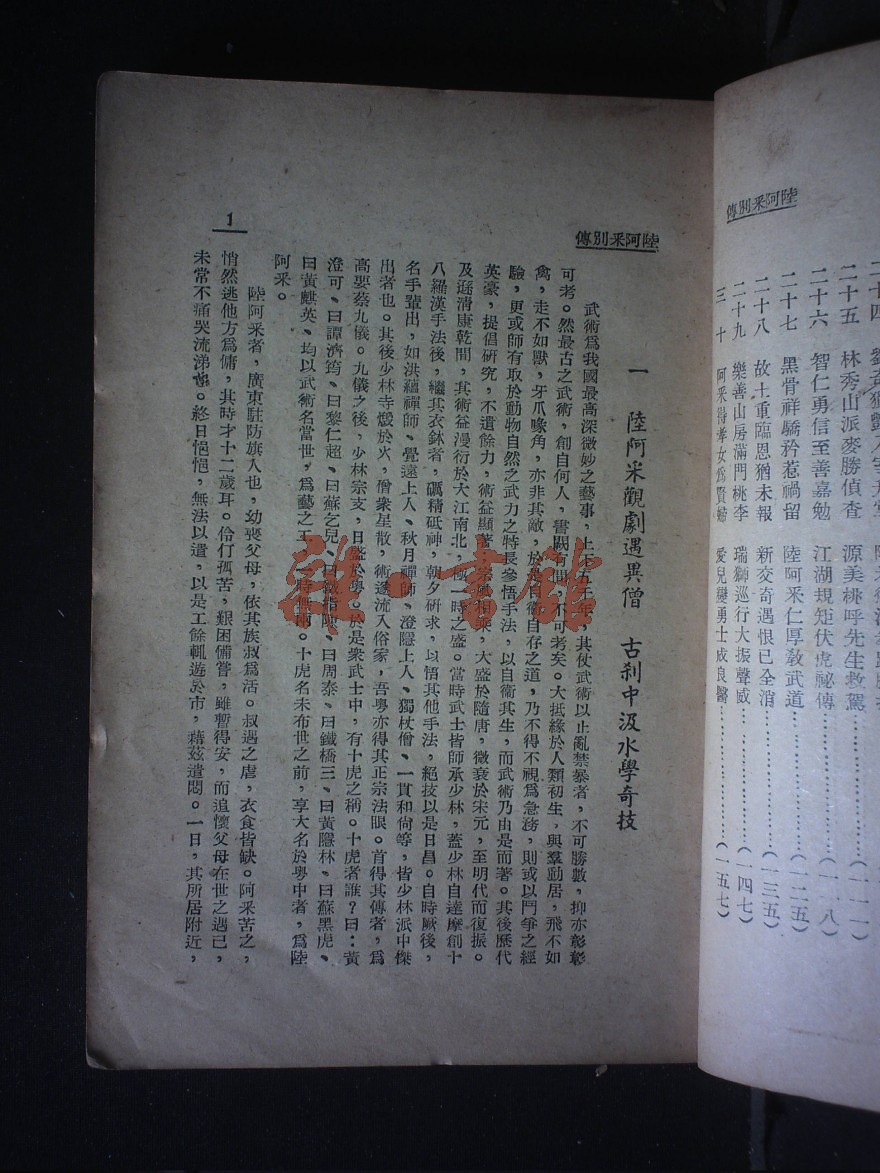 陸阿采別傳
二十五　林秀山派麥勝偵查　源美桃呼先生救駕
二十六　智仁勇信至善嘉勉　江湖規矩伏虎祕傳………………(一一八)
二十七　黑骨祥驕矜惹禍留　陸阿采仁厚敎武道………………(一二五)
二十八　故土重臨恩猶未報　新交奇遇恨已全消………………(一三五)
二十九　樂善山房滿門桃李　瑞獅巡行大振聲威………………(一四七)
三　十　阿采得孝女爲賢婦　愛兒變勇士成良醫………………(一五七)
陸阿采別傳
一　陸阿米觀劇遇異僧　古刹中汲水學奇技
武術爲我國最高深微妙之藝事，上下五千年，其仗武術以止亂禁暴者，不可勝數，抑亦彰彰
可考。然最古之武術，創自何人，書闕有間，不可考矣。大抵緣於人類初生，與羣動居，飛不如
禽，走不如獸，牙爪喙角，亦非其敵，於是自存之道，乃不得不視爲急務，則或以鬥爭之經
驗，更或師有取於動物自然之武力之特長參悟手法，以自衞其生，而武術乃由是而著。其後歷代
英豪，提倡研究，不遺餘力，術益顯著，大盛於隨唐，微衰於宋元，至明代而復振。
及遜淸康乾間，其術益漫衍於大江南北，極一時之盛。當時武士皆師承少林，蓋少林自達摩創十
八羅漢手法後，繼其衣鉢者，礪精砥神，朝夕研求，以悟其他手法，絕技以是日昌。自時厥後，
名手輩出，如洪蘊禪師、覺遠上人、秋月禪師、澄隱上人、獨杖僧、一貫和尙等，皆少林派中傑
出者也。其後少林寺燬於火，僧衆星散，術遂流入俗家，吾粵亦得其正宗法眼。首得其傳者，爲
高要蔡九儀。九儀之後，少林宗支，日盛於粵。於是衆武士中，有十虎之稱。十虎者誰？曰：黃
澄可、曰譚濟筠、曰黎仁超、曰蘇乞兒、曰周泰、曰鐵橋三、曰黃隱林、曰蘇黑虎、
曰黃麒英、均以武術名當世，爲藝之工，一時無兩。十虎名未布世之前，享大名於粵中者，爲陸
阿采。
陸阿采者，廣東駐防旗人也，幼喪父母，依其族叔爲活。叔遇之虐，衣食皆缺。阿采苦之，
悄然逃他方爲傭，其時才十二歲耳。伶仃孤苦，艱困備嘗，雖暫得安，而追懷父母在世之遇己，
未常不痛哭流涕也。終日悒悒，無法以遣，以是工餘輒遊於市，藉茲遣悶。一日，其所居附近，
1